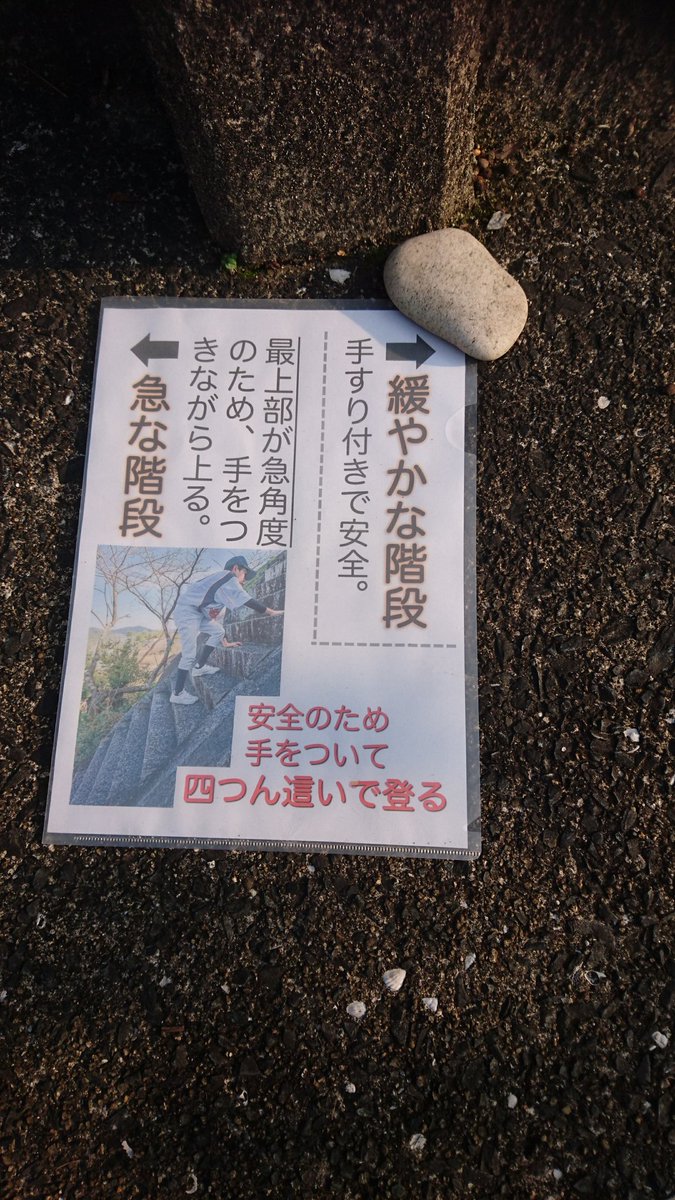 ➡緩やかな階段
手すり付きで安全。
最上部が急角度
のため、手をつ
きながら上る。
⬅急な階段
安全のため
手をついて
四つん這いで登る